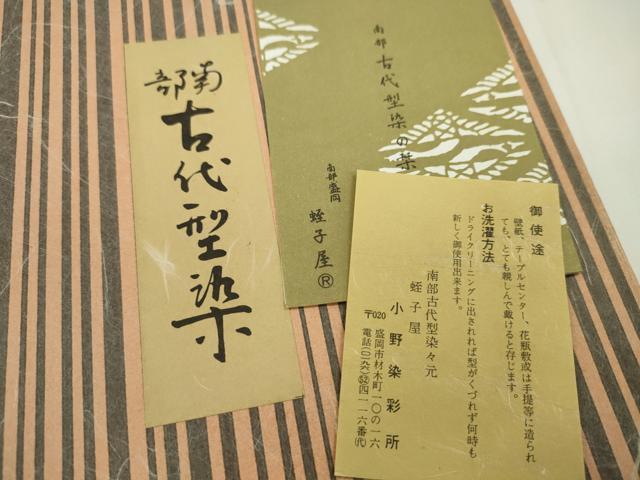 南部
古代型染
南部古代型染の栞
南部盛岡
蛭子屋 ®
御使途
壁紙、テーブルセンター、花瓶敷或は手提等に造られ
ても、とても親しんで戴けると存じます。
お洗濯方法
ドライクリーニングに出されれば型がくづれず何時も
新しく御使用出来ます。
南部古代型染々元
蛭子屋
小野染彩所
〒020 盛岡市材木町一〇の一六
電話(〇一九六)(52)四一一六番(代)